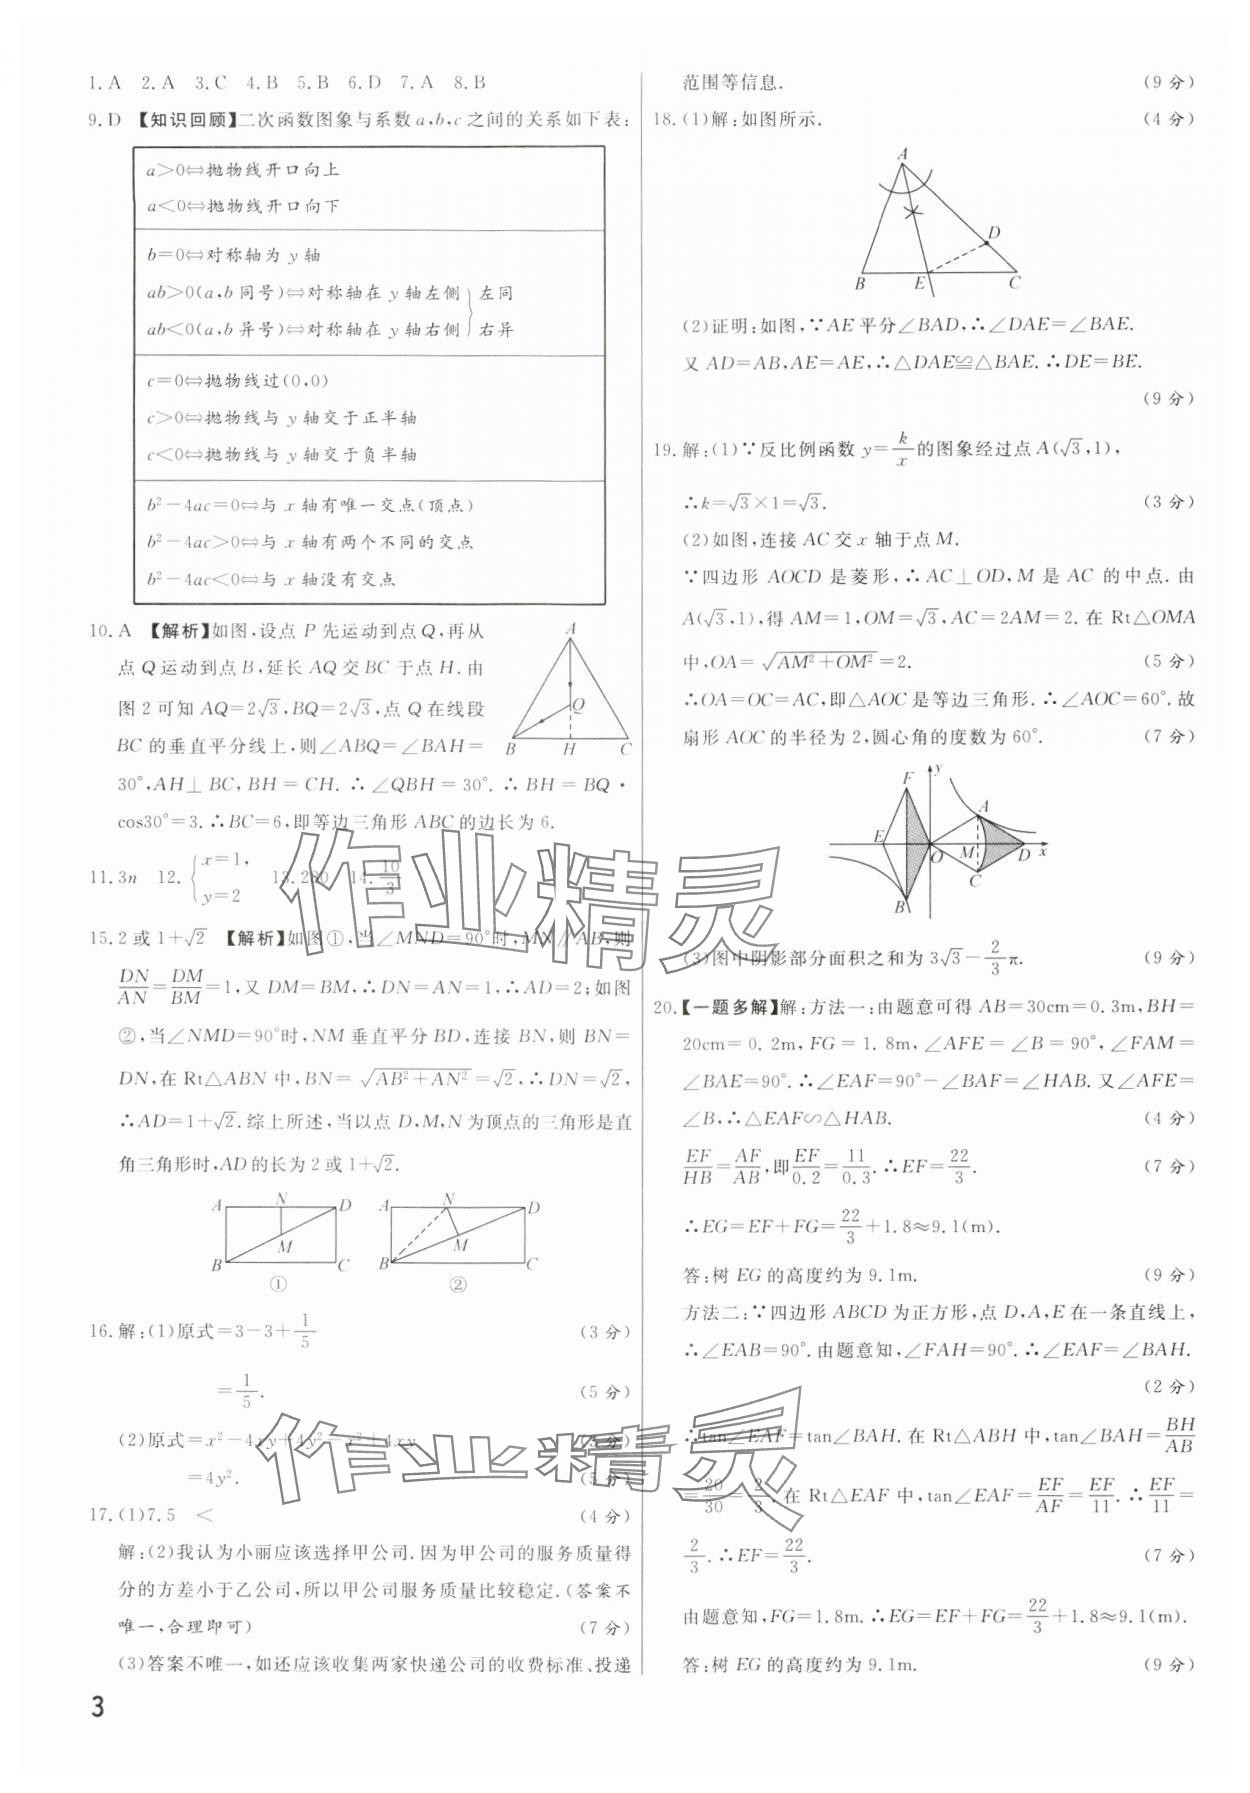 1. A  2. A  3. C  4. B  5. B  6. D  7. A  8. B
9. D 【知识回顾】二次函数图象与系数a,b,c之间的关系如下表:
a>0⇔抛物线开口向上
a<0⇔抛物线开口向下
b=0⇔对称轴为 y 轴
ab>0(a,b同号)⇔对称轴在 y 轴左侧 } 左同
ab<0(a,b异号)⇔对称轴在 y 轴右侧 } 右异
c=0⇔抛物线过(0,0)
c>0⇔抛物线与 y 轴交于正半轴
c<0⇔抛物线与 y 轴交于负半轴
b²-4ac=0⇔与 x 轴有唯一交点(顶点)
b²-4ac>0⇔与 x 轴有两个不同的交点
b²-4ac<0⇔与 x 轴没有交点
10. A 【解析】如图,设点 P 先运动到点 Q,再从
点 Q 运动到点 B,延长 AQ 交 BC 于点 H. 由
图 2 可知 AQ=2√3,BQ=2√3,点 Q 在线段
BC 的垂直平分线上,则∠ABQ=∠BAH=
30°,AH⊥BC,BH=CH. ∴∠QBH=30°. ∴BH=BQ·
cos30°=3. ∴BC=6,即等边三角形 ABC 的边长为 6.
A
Q
B H C
11. 3n  12. {x=1, y=2  13. 280  14. 10/3
15. 2 或 1+√2 【解析】如图①,当∠MND=90°时,MN∥AB,则
DN/AN=DM/BM=1,又 DM=BM,∴DN=AN=1,∴AD=2;如图
②,当∠NMD=90°时,NM 垂直平分 BD,连接 BN,则 BN=
DN,在 Rt△ABN 中,BN=√(AB²+AN²)=√2,∴DN=√2,
∴AD=1+√2. 综上所述,当以点 D,M,N 为顶点的三角形是直
角三角形时,AD 的长为 2 或 1+√2.
A N D A N D
M M
B C B C
① ②
16. 解:(1)原式=3-3+1/5 (3 分)
=1/5. (5 分)
(2)原式=x²-4xy+4y²-x²+4xy (3 分)
=4y². (5 分)
17. (1)7.5 < (4 分)
解:(2)我认为小丽应该选择甲公司. 因为甲公司的服务质量得
分的方差小于乙公司,所以甲公司服务质量比较稳定.(答案不
唯一,合理即可) (7 分)
(3)答案不唯一,如还应该收集两家快递公司的收费标准、投递
3
范围等信息. (9 分)
18. (1)解:如图所示. (4 分)
A
D
B E C
(2)证明:如图,∵AE 平分∠BAD,∴∠DAE=∠BAE.
又 AD=AB,AE=AE,∴△DAE≌△BAE. ∴DE=BE.
(9 分)
19. 解:(1)∵反比例函数 y=k/x 的图象经过点 A(√3,1),
∴k=√3×1=√3. (3 分)
(2)如图,连接 AC 交 x 轴于点 M.
∵四边形 AOCD 是菱形,∴AC⊥OD,M 是 AC 的中点. 由
A(√3,1),得 AM=1,OM=√3,AC=2AM=2. 在 Rt△OMA
中,OA=√(AM²+OM²)=2. (5 分)
∴OA=OC=AC,即△AOC 是等边三角形. ∴∠AOC=60°. 故
扇形 AOC 的半径为 2,圆心角的度数为 60°. (7 分)
F y
A
E O M D x
C
B
(3)图中阴影部分面积之和为 3√3-2/3π. (9 分)
20. 【一题多解】解:方法一:由题意可得 AB=30cm=0.3m,BH=
20cm=0.2m,FG=1.8m,∠AFE=∠B=90°,∠FAM=
∠BAE=90°. ∴∠EAF=90°-∠BAF=∠HAB. 又∠AFE=
∠B,∴△EAF∽△HAB. (4 分)
EF/HB=AF/AB,即EF/0.2=11/0.3. ∴EF=22/3. (7 分)
∴EG=EF+FG=22/3+1.8≈9.1(m).
答:树 EG 的高度约为 9.1m. (9 分)
方法二:∵四边形 ABCD 为正方形,点 D,A,E 在一条直线上,
∴∠EAB=90°. 由题意知,∠FAH=90°. ∴∠EAF=∠BAH.
(2 分)
∴tan∠EAF=tan∠BAH. 在 Rt△ABH 中,tan∠BAH=BH/AB
=20/30=2/3. 在 Rt△EAF 中,tan∠EAF=EF/AF=EF/11. ∴EF/11=
2/3. ∴EF=22/3. (7 分)
由题意知,FG=1.8m. ∴EG=EF+FG=22/3+1.8≈9.1(m).
答:树 EG 的高度约为 9.1m. (9 分)
作业精灵
作业精灵